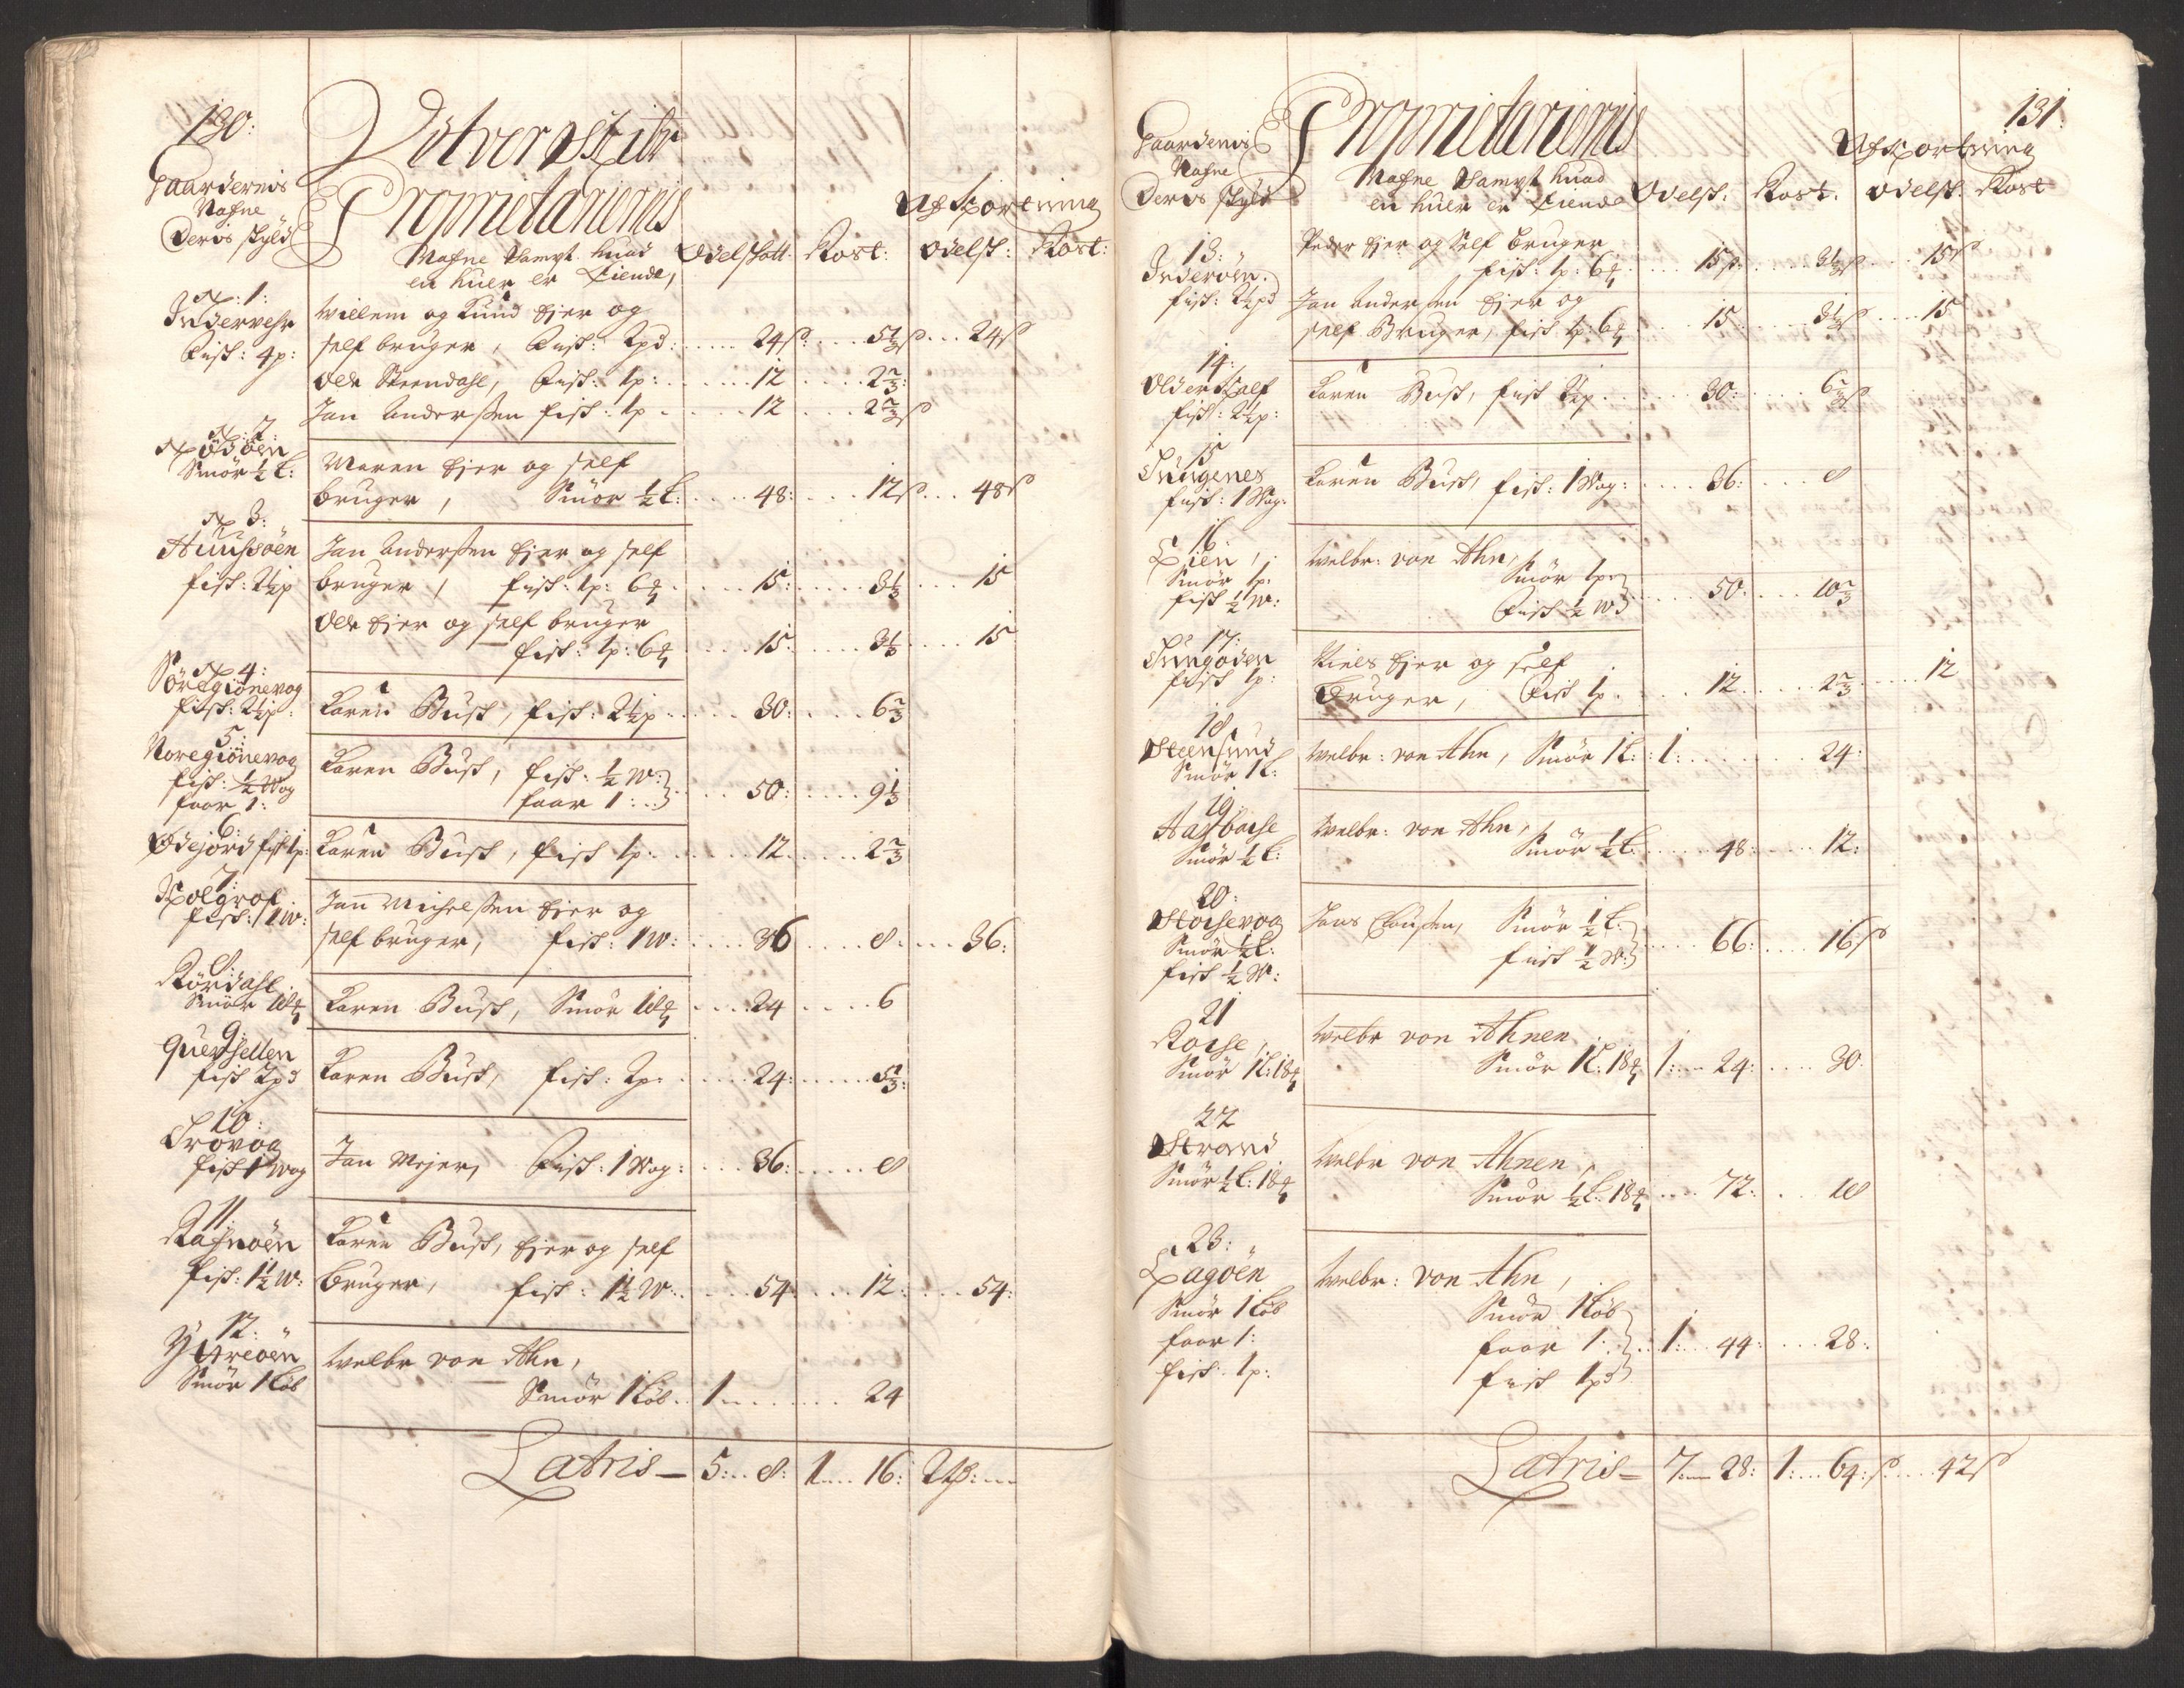 130:
Gaardernis
Nafne
Deris skyld
Proprietariernis
Nafne Sampt huad
en huer er Eiende,
Odelskatt:
Rost:
Afkortning
Odelsk:
Rost:
N: 1:
Indervehr
Fisk: 4p:
Willem og Knud Ejer og
self bruger, Fisk: 2pd: 24s: 5⅓s 24s
Ole Steendahl, Fisk: 1p: 12 2⅔:
Jan Anderssen fisk: 1p 12 2⅔s
N: 2:
Smör ½ L:
Maren Ejer og self
bruger, Smör ½ L: 48: 12s 48s
N 3:
fisk: 2½p
Jan Anderssen Ejer og self
bruger, fisk: 1p: 6 15: 3⅓ 15
Ole Ejer og self bruger
fisk: 1p: 6 15: 3⅓ 15
N 4:
Söregiönevog
fisk: 2½p:
Karen Busk, fisk: 2½p 30: 6⅔
5:
Noregiönevog
fisk: ½ Wog
faar 1:
Karen Busk, fisk: ½ W:
faar 1: 50: 9⅓
6:
Ödejord fisk 1p:
Karen Busk, fisk 1p: 12 2⅔
7:
Holgrof
fisk: 1 W:
Jan Michelssen Ejer og
self bruger, fisk: 1 W: 36 8: 36:
8:
Rördahl
Smör 18
Karen Busk, Smör 18 24 6
9:
fisk 2pd
Karen Busk, fisk: 2p: 24: 5⅓:
10:
Trovog
fisk 1 Wog
Jan Mejer, Fisk: 1 Wog: 36: 8
11:
Rafnöen
fisk: 1½ W:
Karen Busk, Ejer og self
bruger, fisk: 1½ W: 54: 12: 54:
12:
Yttreöen
Smör 1 Löb
Welbr von Ahn,
Smör 1 Löb 1 24
Latris— 5: 8: 1 16: 2
131:
Gaardernis
Nafne
Deris skyld
Proprietariernis
Nafne Sampt huad
en huer er Eiende
Odelsk:
Rost:
Afkortning
Odelsk:
Rost
13:
Inderöen
fisk: 2½pd
Peder Ejer og Self bruger
fisk: 1p: 6 15s 3⅓s 15s
Jan Anderssen Ejer og
self Bruger, fisk 1p: 6 15 3⅓s 15
14:
fisk: 2½p:
Karen Busk, fisk 2½p 30: 6⅔s
15
Tungenes
fisk: 1 Wog:
Karen Busk, fisk: 1 Wog: 36: 8
16
Smör 1p:
fisk ½ W:
Welbr: von Ahn, Smör 1p:
Fisk ½ W 50: 10⅔
17:
fisk 1p:
Niels Ejer og self
Bruger, Fisk 1p 12 2⅔ 12
18
Steensund
Smör 1 L:
Welbr: von Ahn, Smör 1 L: 1: 24:
19:
Smör ½ L:
Welbr: von Ahn,
Smör ½ L: 48: 12:
20:
Smör ½ L:
fisk ½ W:
Jens Claussen, Smör ½ L:
fisk ½ W: 66: 16s
21
Smör 1 L: 18
Welbr von Ahnen
Smör 1 L: 18 1: 24: 30
22
Strand
Smör ½ L: 18
Welbr von Ahnen,
Smör ½ L: 18 72: 18
23:
Lagöen
Smör 1 Löb
faar 1:
fisk: 1p:
Welbr: von Ahn,
Smör 1 Löb
faar 1:
fisk 1pd 1: 44: 28:
Latris— 7 28: 1: 64: s 42s